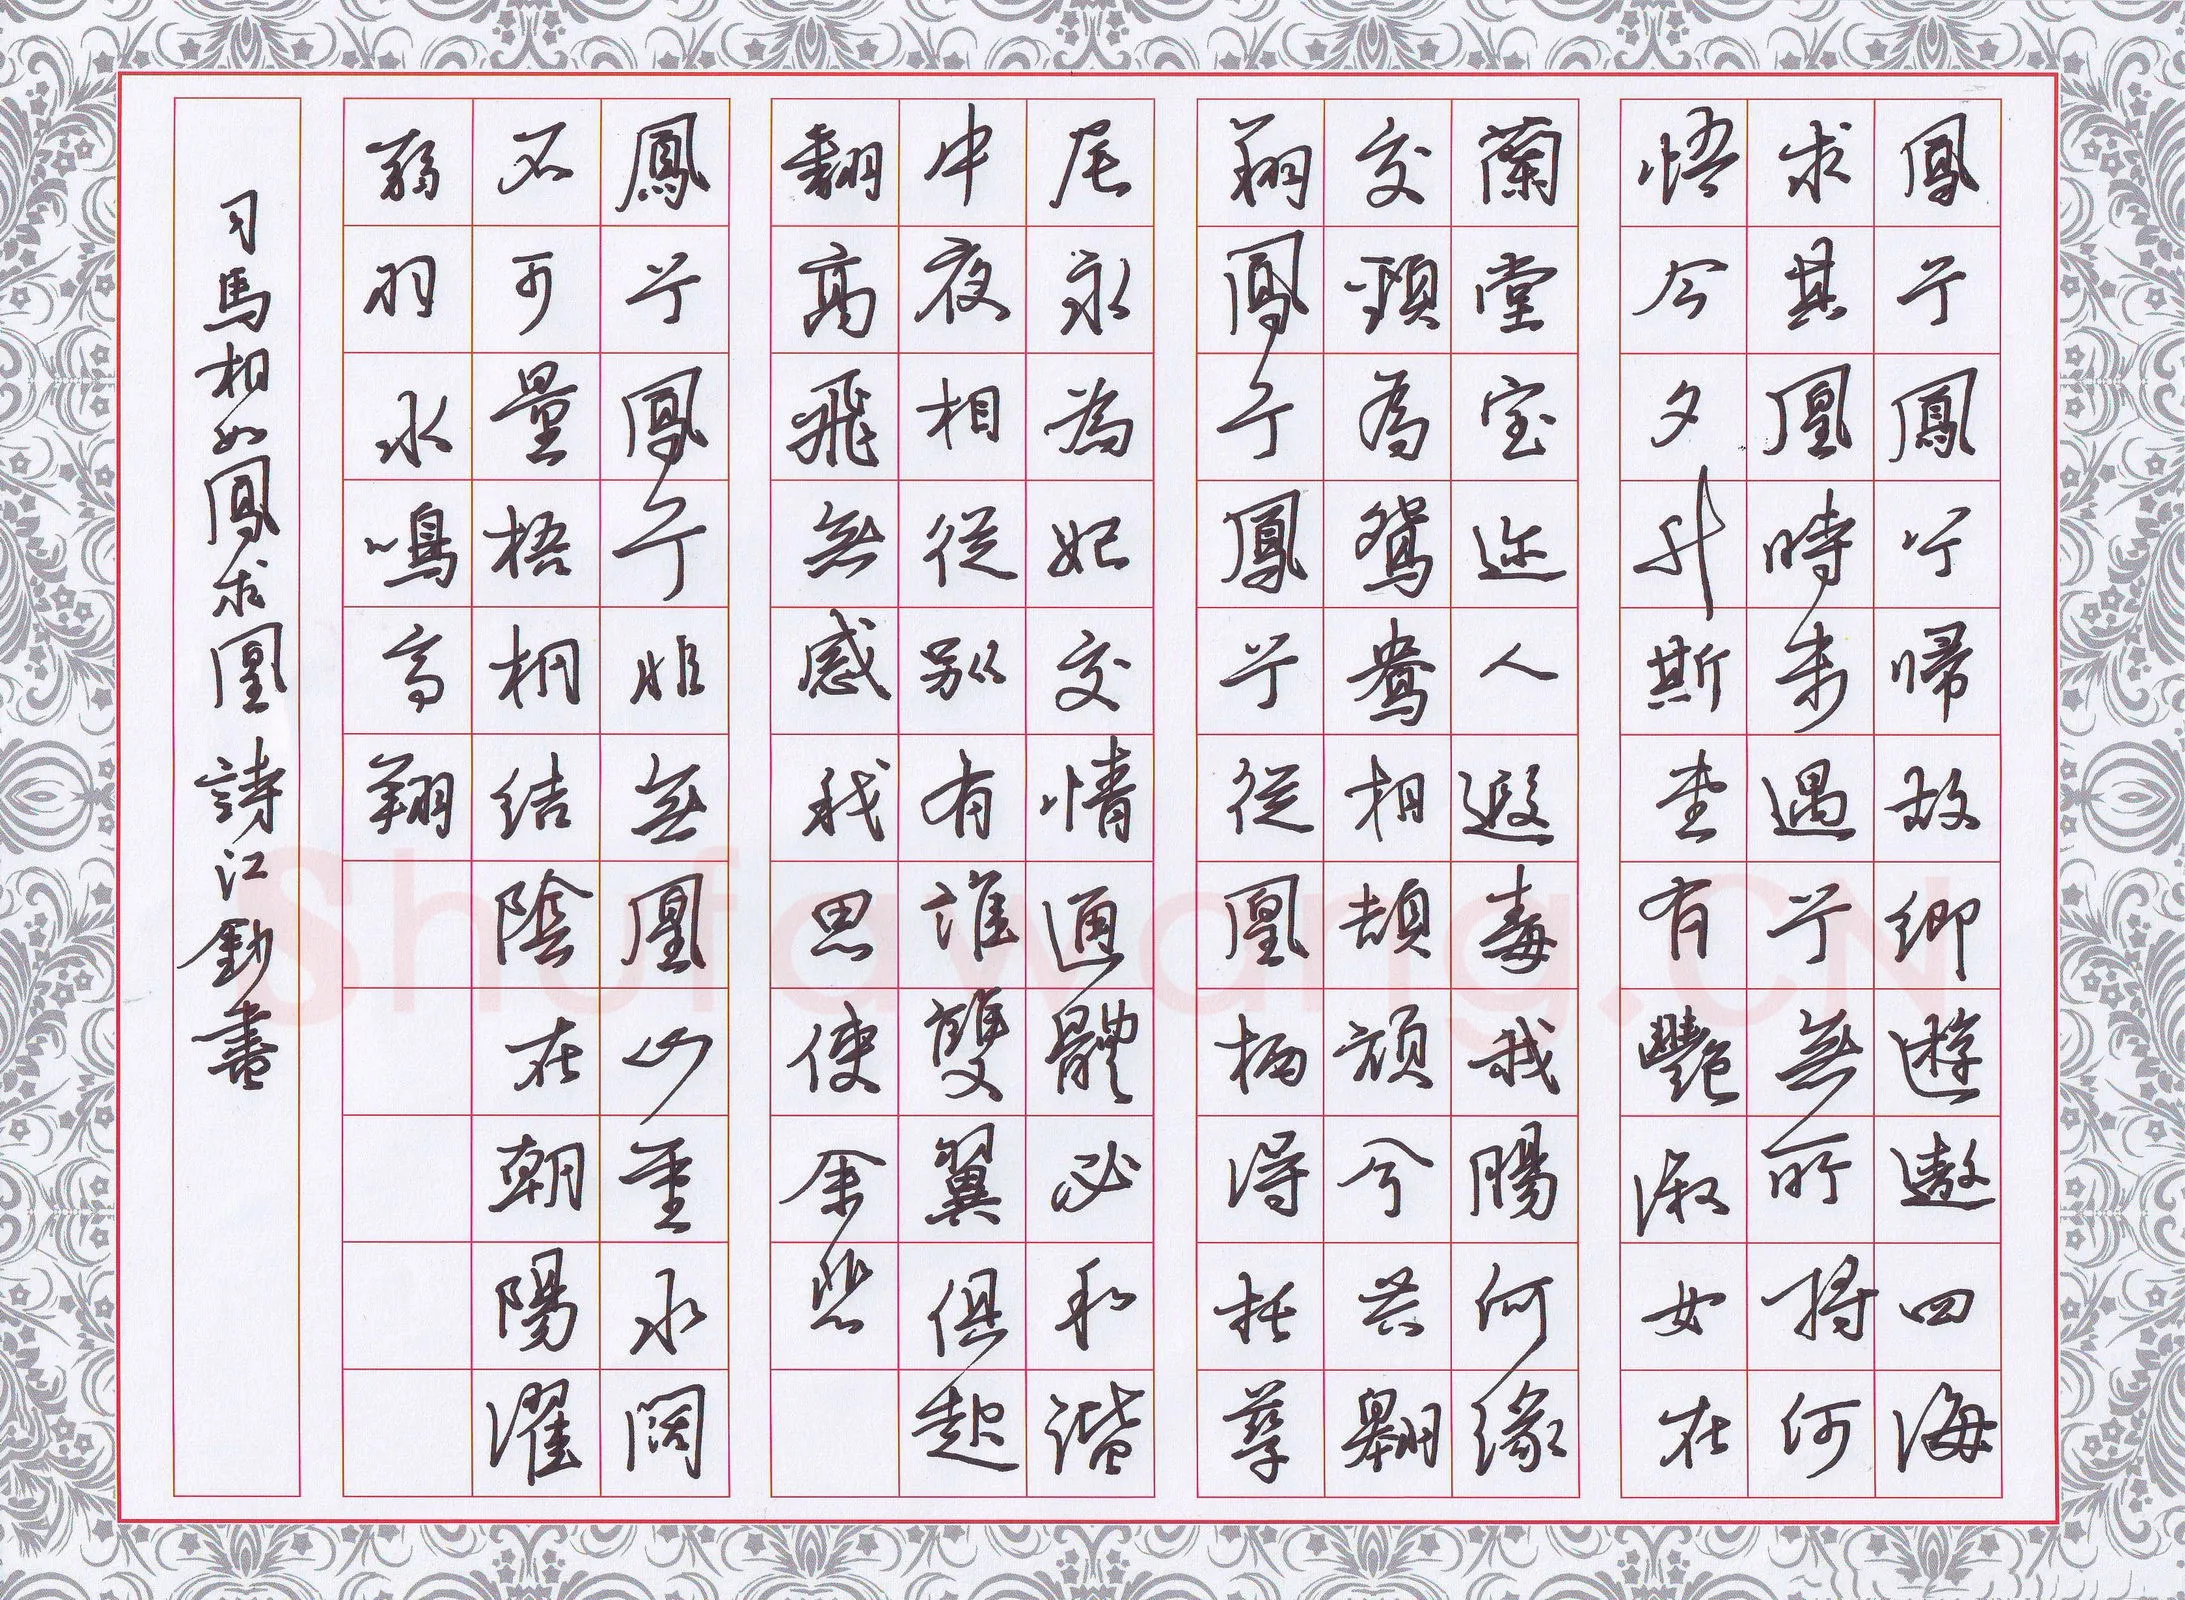 鳳兮鳳兮歸故鄉遊遨四海
求其凰時未遇兮無所將何
悟今夕升斯堂有艷淑女在
蘭堂室迩人遐毒我腸何緣
交頸為鴛鴦相頡頏兮共翱
翔鳳兮鳳兮從凰栖得托孳
尾永為妃交情通體必和諧
中夜相從別有誰雙翼俱起
翻高飛無感我思使余悲
鳳兮鳳兮非無凰山重水闊
不可量梧桐結陰在朝陽濯
弱羽水鳴高翔
司馬相如鳳求凰詩江書
Shufawang.CN